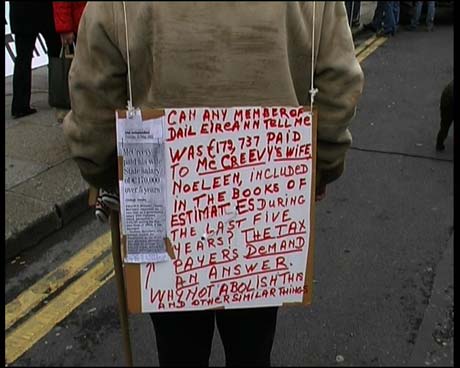 McCreevy
paid his wife
State salary
of €170,000
over 5 years
CAN ANY MEMBER OF
DAIL EIREANN TELL ME
WAS £172,737 PAID
TO MCCREEVY'S WIFE
NOELEEN, INCLUDED
IN THE BOOKS OF
ESTIMATES DURING
THE LAST FIVE
YEARS? THE TAX
PAYERS DEMAND
AN ANSWER.
WHY NOT ABOLISH THIS
AND OTHER SIMILAR THINGS